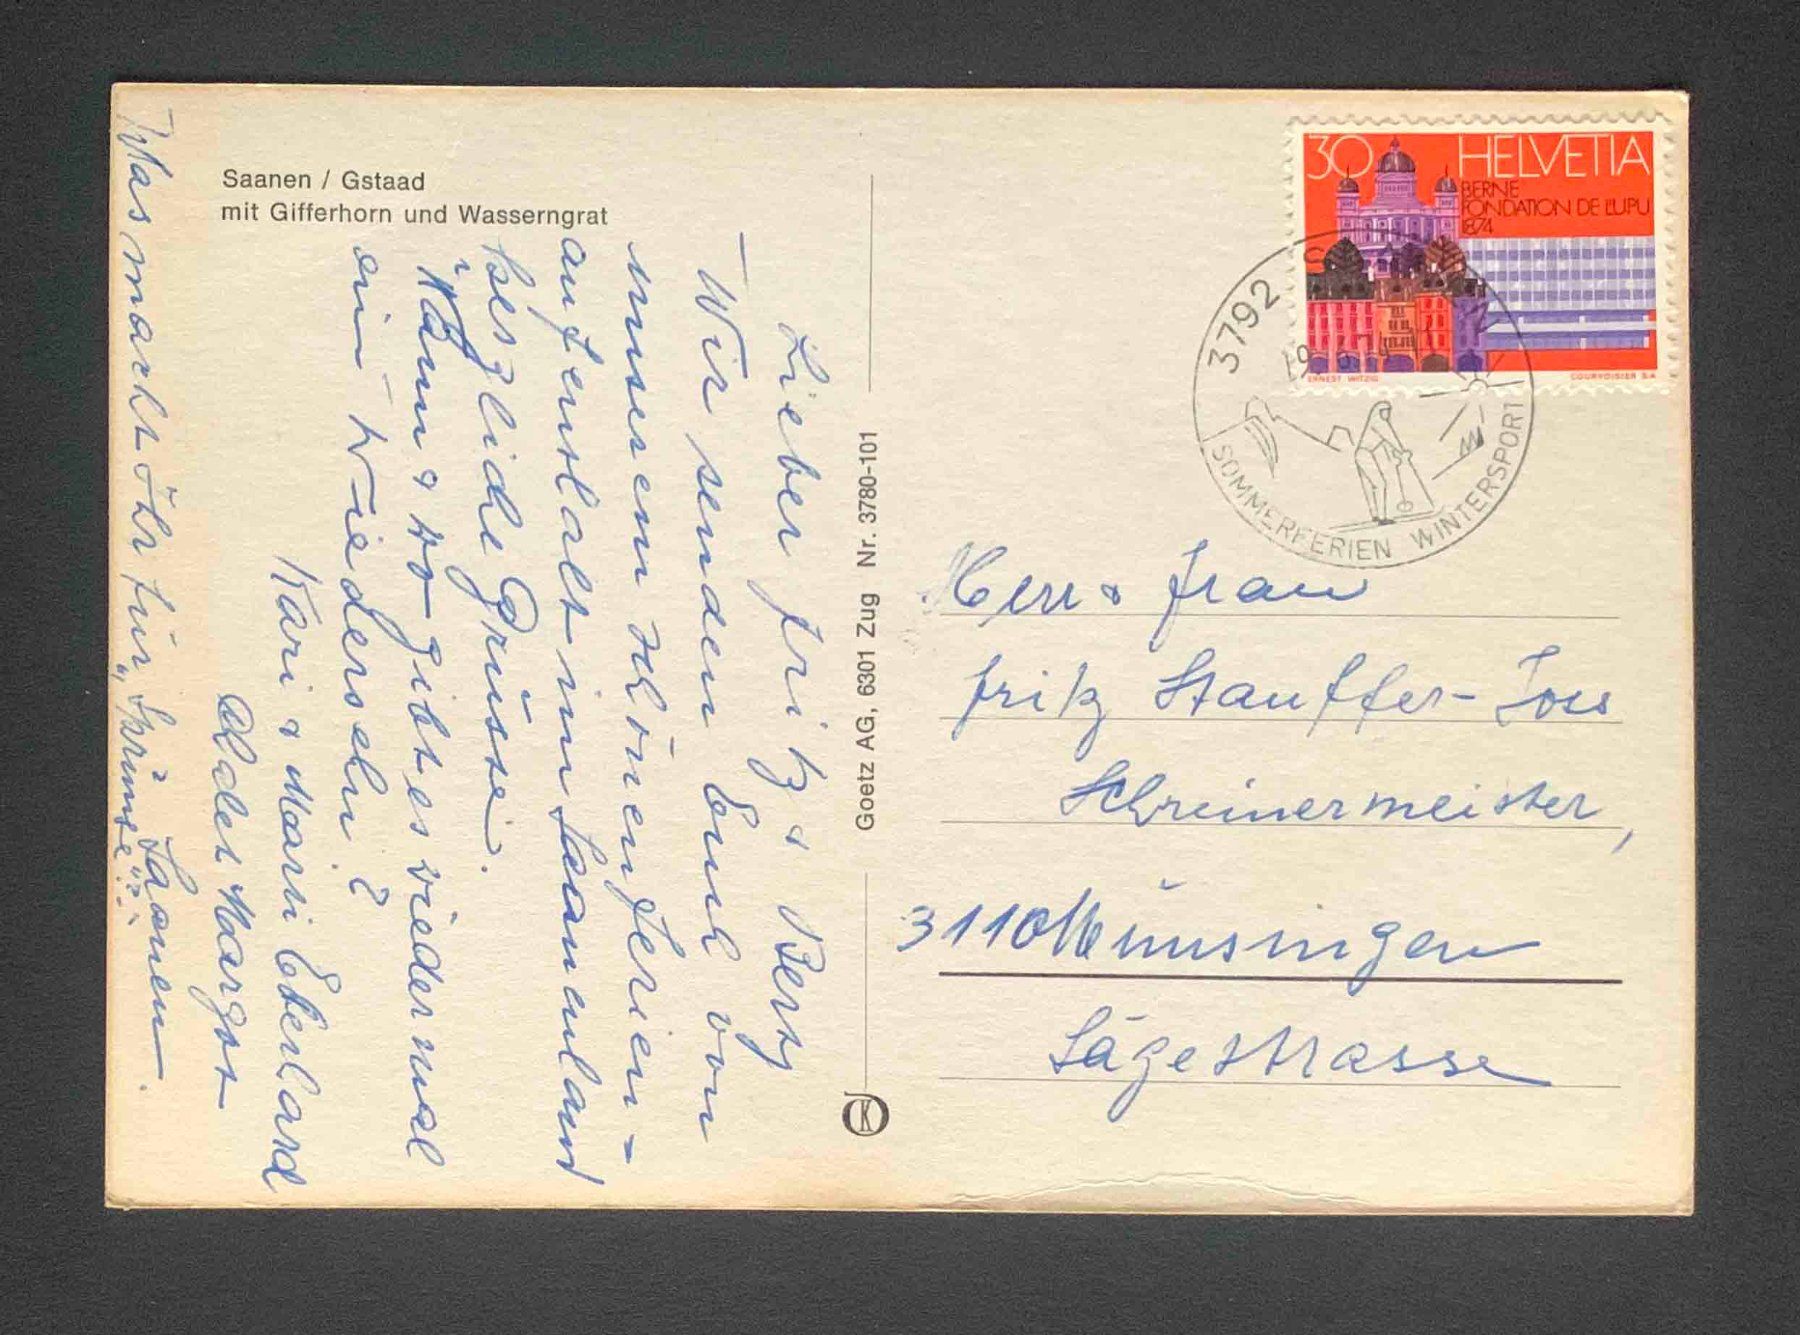 Saanen / Gstaad
mit Gifferhorn und Wasserngrat
Lieber Fritz & Berty
Wir senden Euch von
unserem schönen Ferien-
aufenthalt im Saanenland
herzliche Grüsse.
Wann & wo gibt es wieder mal
ein Wiedersehn?
Kari & Marti Eberhard
Margot
Was macht Ihr für „Sprünge"?
Saanen.
Goetz AG, 6301 Zug Nr. 3780-101
30 HELVETIA
BERNE
FONDATION DE L'UPU
1874
ERNEST WITZIG COURVOISIER S.A.
3792
SOMMERFERIEN WINTERSPORT
Herr & Frau
Fritz Stauffer-Joss
Schreinermeister,
3110 Münsingen
Sägestrasse